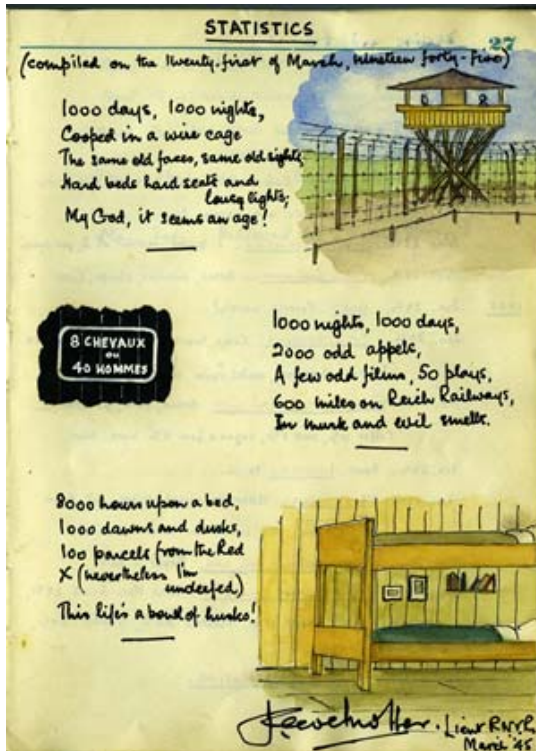 STATISTICS
27
(compiled on the Twenty-first of March, nineteen forty-five)
1000 days, 1000 nights,
Cooped in a wire cage
The same old faces, same old sights,
Hard beds hard seats and
lousy lights;
My God, it seems an age!
8 CHEVAUX
ou
40 HOMMES
1000 nights, 1000 days,
2000 odd appels,
A few odd films, 50 plays,
600 miles on Reich Railways,
In murk and evil smells.
8000 hours upon a bed,
1000 dawns and dusks,
100 parcels from the Red
X (nevertheless I'm
underfed)
This life's a bowl of husks!
Lieut RNVR
March '45